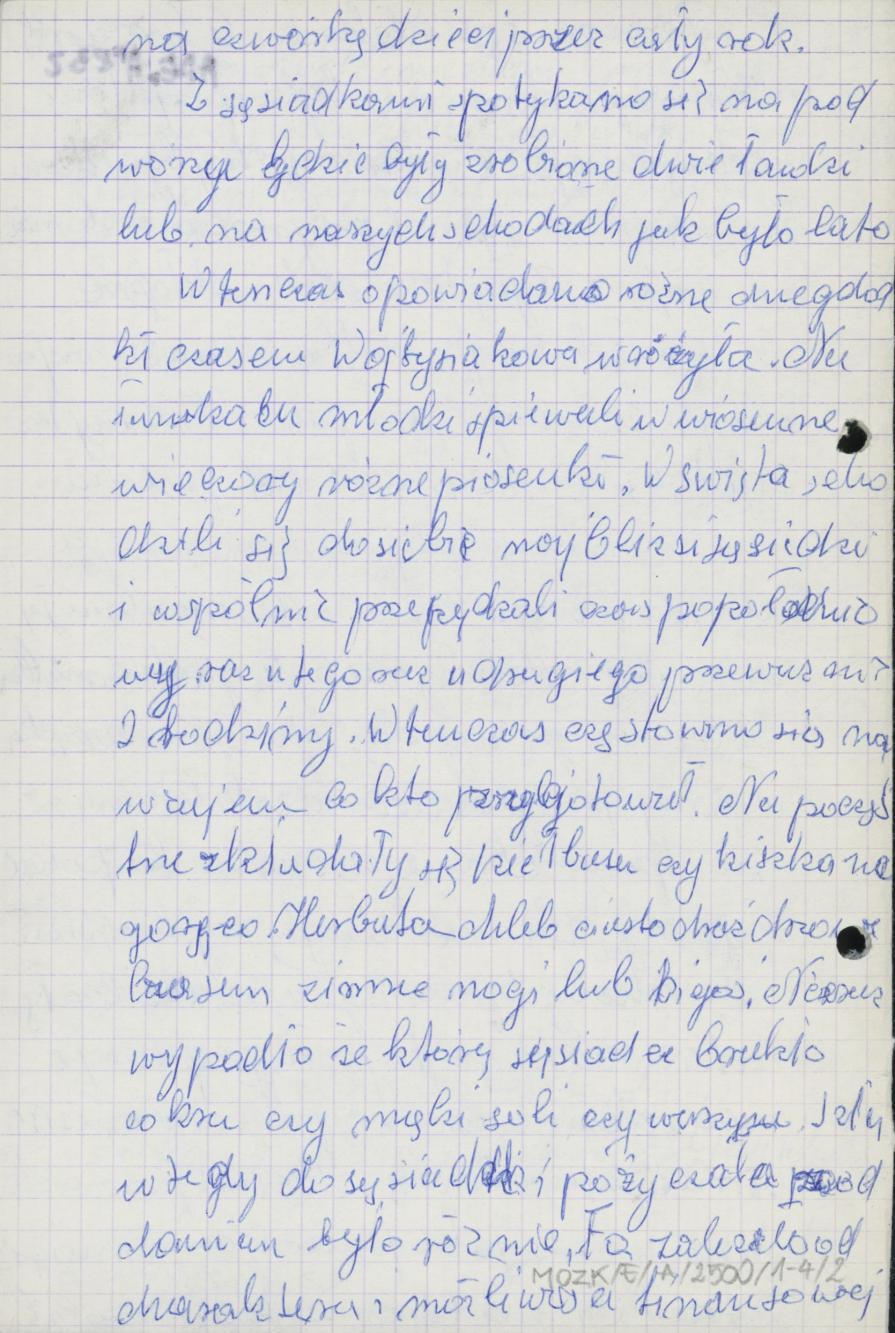 na czwórkę dzieci przez cały rok.
Z sąsiadkami spotykano się na pod
wórzu gdzie były zrobione dwie ławki
lub na naszych schodach jak było lato
Wtenczas opowiadano różne anegdot
ki czasem Wojtysiakowa wróżyła. Na
młodzi śpiewali w wiosenne
wieczory różne piosenki, W święta scho
dzili się do siebie najbliżsi sąsiedzi
i wspólnie przepędzali czas popołudnio
wy raz u tego raz u drugiego przeważnie
2 rodziny. Wtenczas częstowano się na
wzajem co kto przygotował. Na poczęs
tne składały się kiełbasa czy kiszka na
gorąco. Herbata chleb ciasto drożdżowe
czasem zimne nogi lub bigos. Nieraz
wypadło że którejś sąsiadce brakło
cokru czy mąki soli czy warzyw. Szły
wtedy do sąsiadki i pożyczała z od
daniem było różnie, To zależało od
charakteru i możliwości finansowej
MOZK/E/A/2500/1-4/2